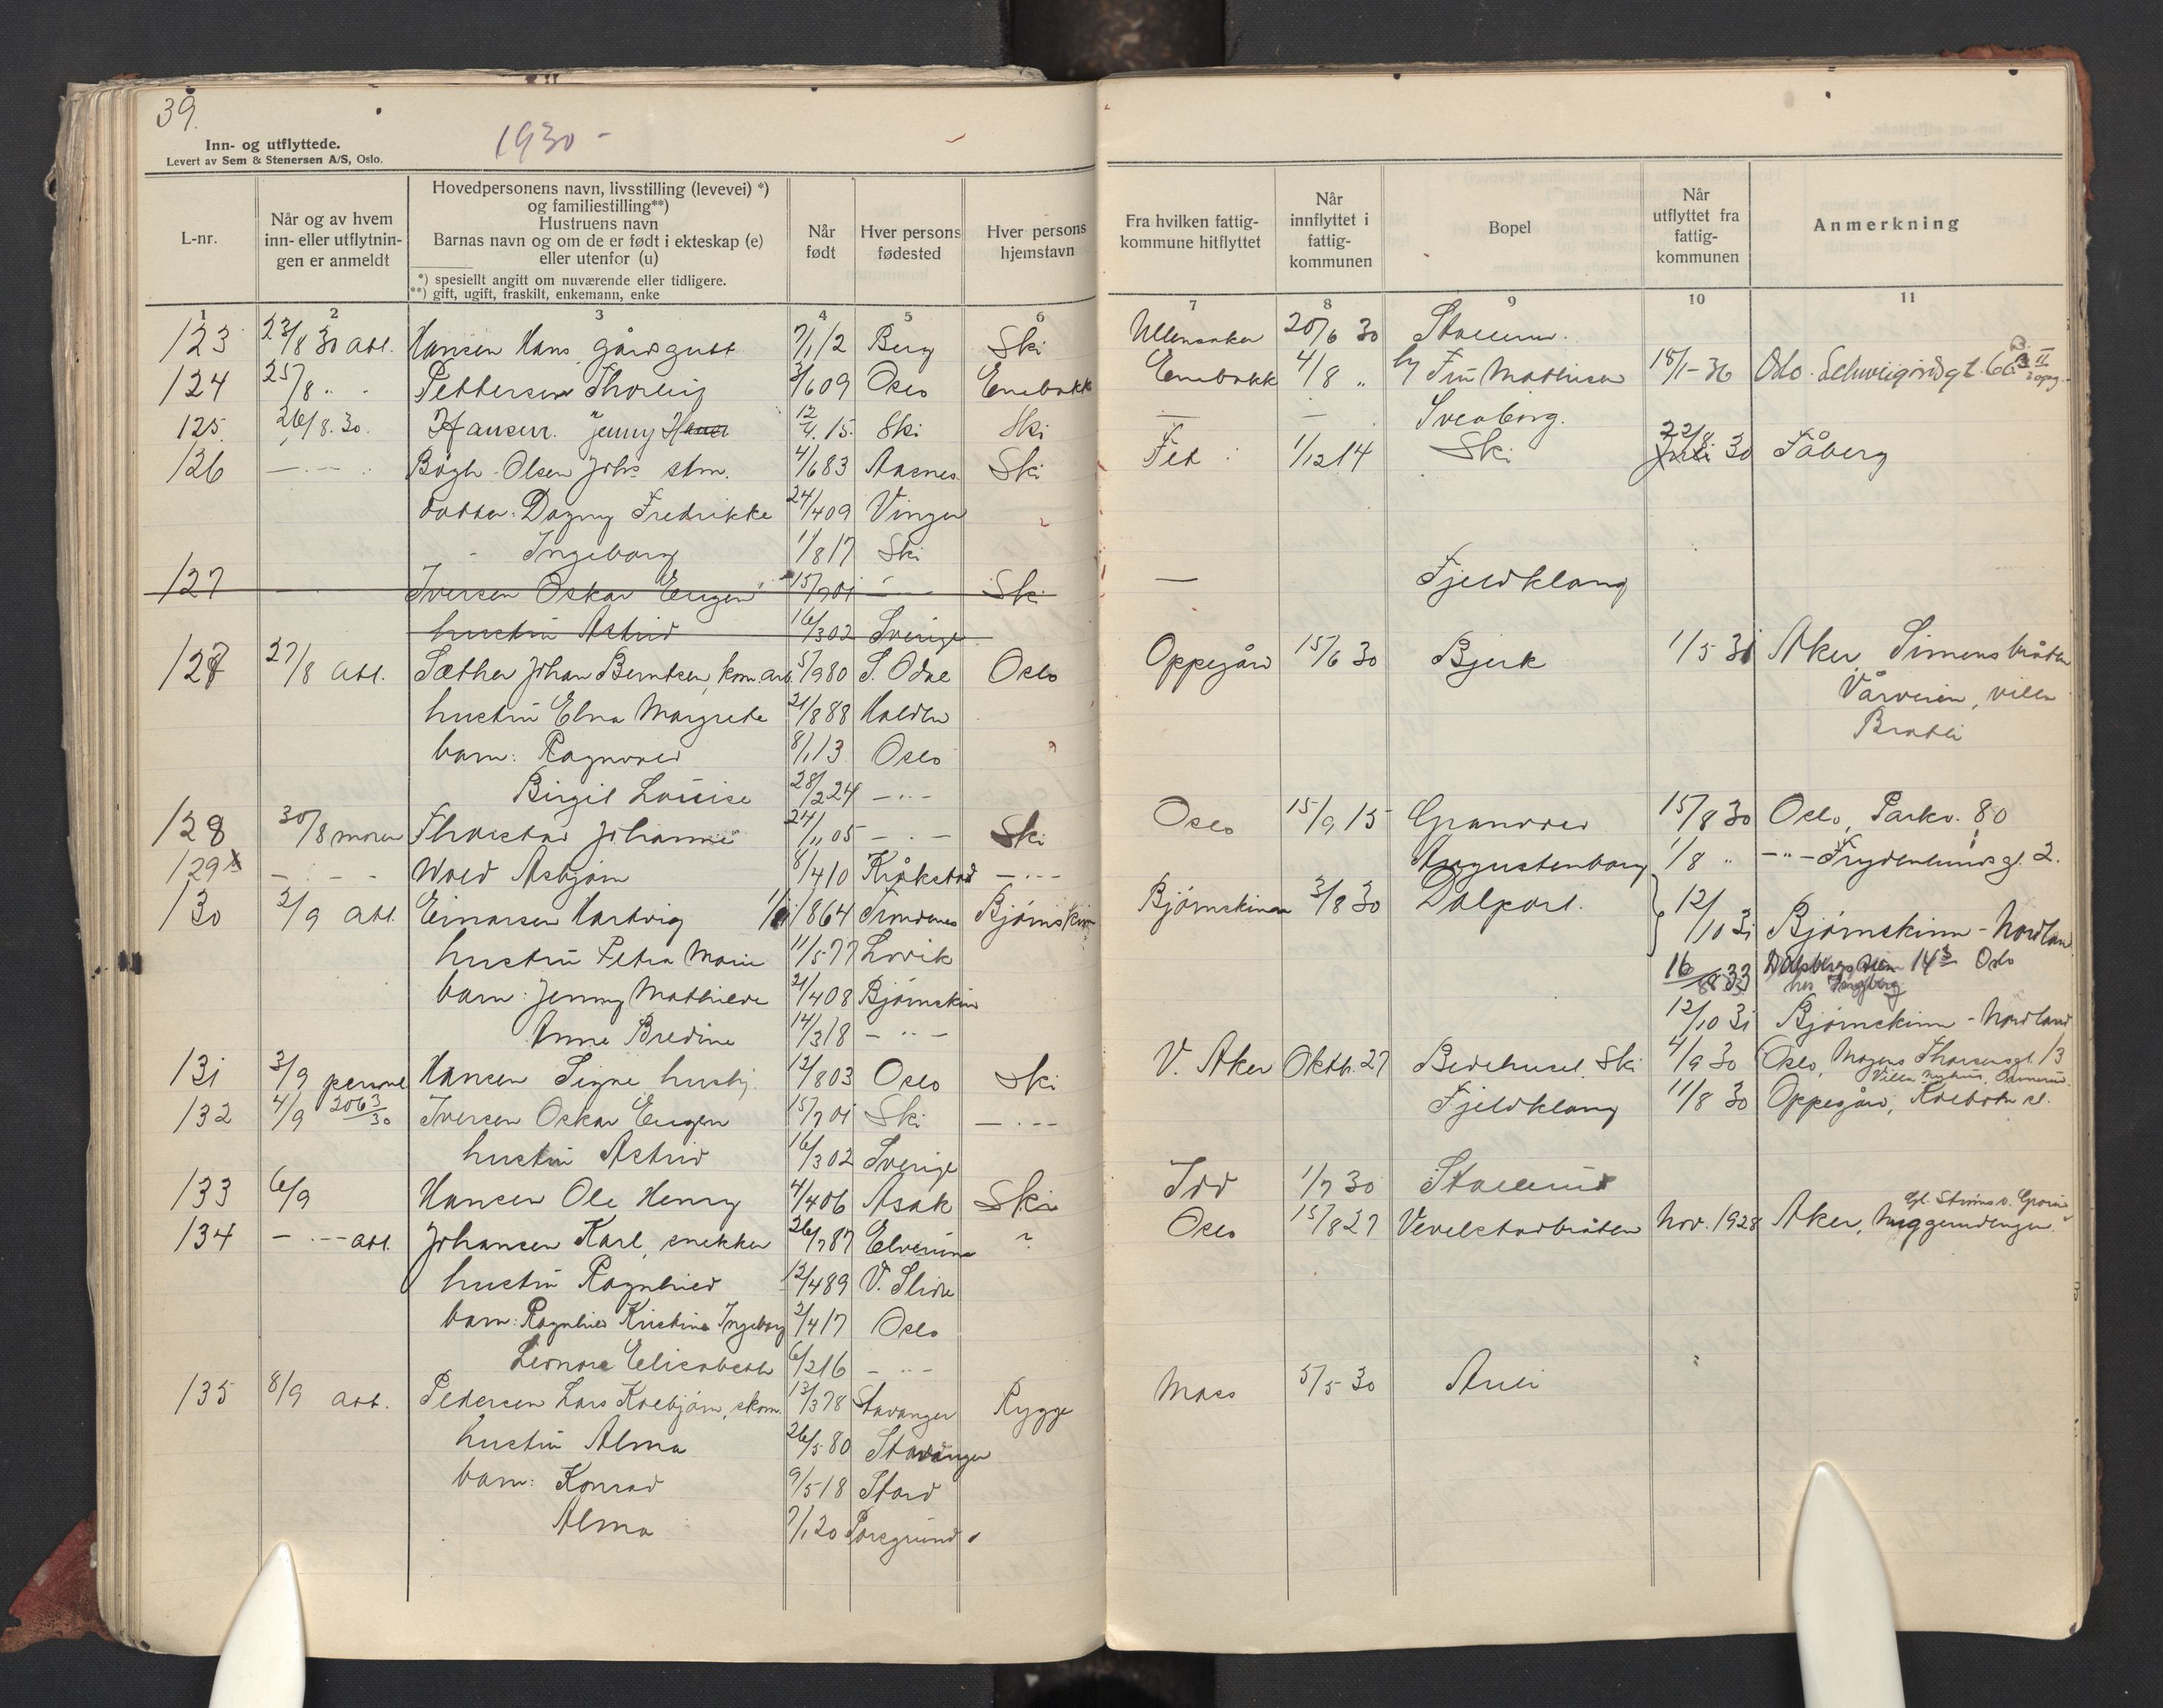 39.
Inn- og utflyttede.
Levert av Sem & Stenersen A/S, Oslo.
1930 -
L-nr.
Når og av hvem inn- eller utflytnin- gen er anmeldt
Hovedpersonens navn, livsstilling (levevei) *)
og familiestilling**)
Hustruens navn
Barnas navn og om de er født i ekteskap (e)
eller utenfor (u)
*) spesiellt angitt om nuværende eller tidligere.
**) gift, ugift, fraskilt, enkemann, enke
Når født
Hver persons fødested
Hver persons hjemstavn
Fra hvilken fattig- kommune hitflyttet
Når innflyttet i fattig- kommunen
Bopel
Når utflyttet fra fattig- kommunen
Anmerkning
1 2 3 4 5 6 7 8 9 10 11
123 23/8 30 abl. Hansen Hans, gårdsgutt 7/1 12 Berg Ski Ullensaker 20/6 30
124 25/8 " " Pettersen Thorleif 3/6 09 Oslo Enebakk Enebakk 4/8 " h/ Fru Mathisen 18/1-36 Oslo. Schweigårdsgt. 66 B II
125. 26/8. 30. Hansen. Jenny 12/4. 15. Ski Ski — — Sveaborg.
126 — " — Bøgh-Olsen Johs stm. 4/6 83 Aasnes Ski Fet 1/12 14 Ski 22/8 Juli 30 Fåberg
datter: Dagny Fredrikke 24/4 09 Vinger
- Ingeborg 1/8 17 Ski
127 Iversen Oskar Eugen 15/7 01 — " — Ski — Fjeldklang
hustru Astrid 16/3 02 Sverige
127 27/8 abl. Sæther Johan Berntsen, kom.arb. 5/9 80 S. Odal Oslo Oppegård 15/6 30 Bjerk 1/5 31 Aker, Simensbråten
hustru Elna Margrete 21/8 88 Halden Vårveien, villa
barn: Ragnvald 8/1 13 Oslo Bratli
Birgit Louise 28/2 24 — " —
128 30/8 moren Thorstad Johannes 24/11 05 — " — Ski Oslo 15/9 15 Granvold 15/8 30 Oslo, Parkv. 80
129 — " — Wold Asbjørn 8/4 10 Kråkstad — " — Augustenborg 1/8 " — " — Frydenlundsgt. 2.
130 2/9 abl. Einarsen Hartvig 1/1 1864 Trondenes Bjørnskinn Bjørnskinn 3/8 30 Dalsport. 12/10 31 Bjørnskinn - Nordland
hustru Petra Marie 11/5-77 Lovik 16/8 33 14 Oslo
barn: Jenny Mathilde 21/4 08 Bjørnskinn hos Ingeborg
Anne Bredine 14/3 18 — " — 12/10 31 Bjørnskinn - Nordland
131 3/9 personl Hansen Signe husbj. 12/8 03 Oslo Ski V. Aker Oktbr. 27 Bedehuset, Ski 4/9 30 Oslo, Mogens Thorsensgt. 13
132 4/9 2063/30 Iversen Oskar Eugen 15/7 01 Ski — " — Fjeldklang 11/8 30 Oppegård, Kolbotn st.
hustru Astrid 16/3 02 Sverige
133 6/9 Hansen Ole Henry 4/4 06 Asak Ski Idd 1/7 30
134 — " — abl. Johansen Karl, snekker 26/7 87 Elverum ? Oslo 15/8 27 Vevelstadbråten Nov. 1928 Aker,
hustru Ragnhild 12/4 89 V. Slidre
barn: Ragnhild Kristine Ingeborg 2/4 17 Oslo
Leonora Elisabeth 6/2 16 — " —
135 8/9 abl. Pedersen Lars Kolbjørn, skom. 13/3 78 Stavanger Rygge Moss 5/5-30 Auli
hustru Alma 26/5 80 Stavanger
barn: Konrad 9/5 18 Stord
Alma 7/1 20 Porsgrund